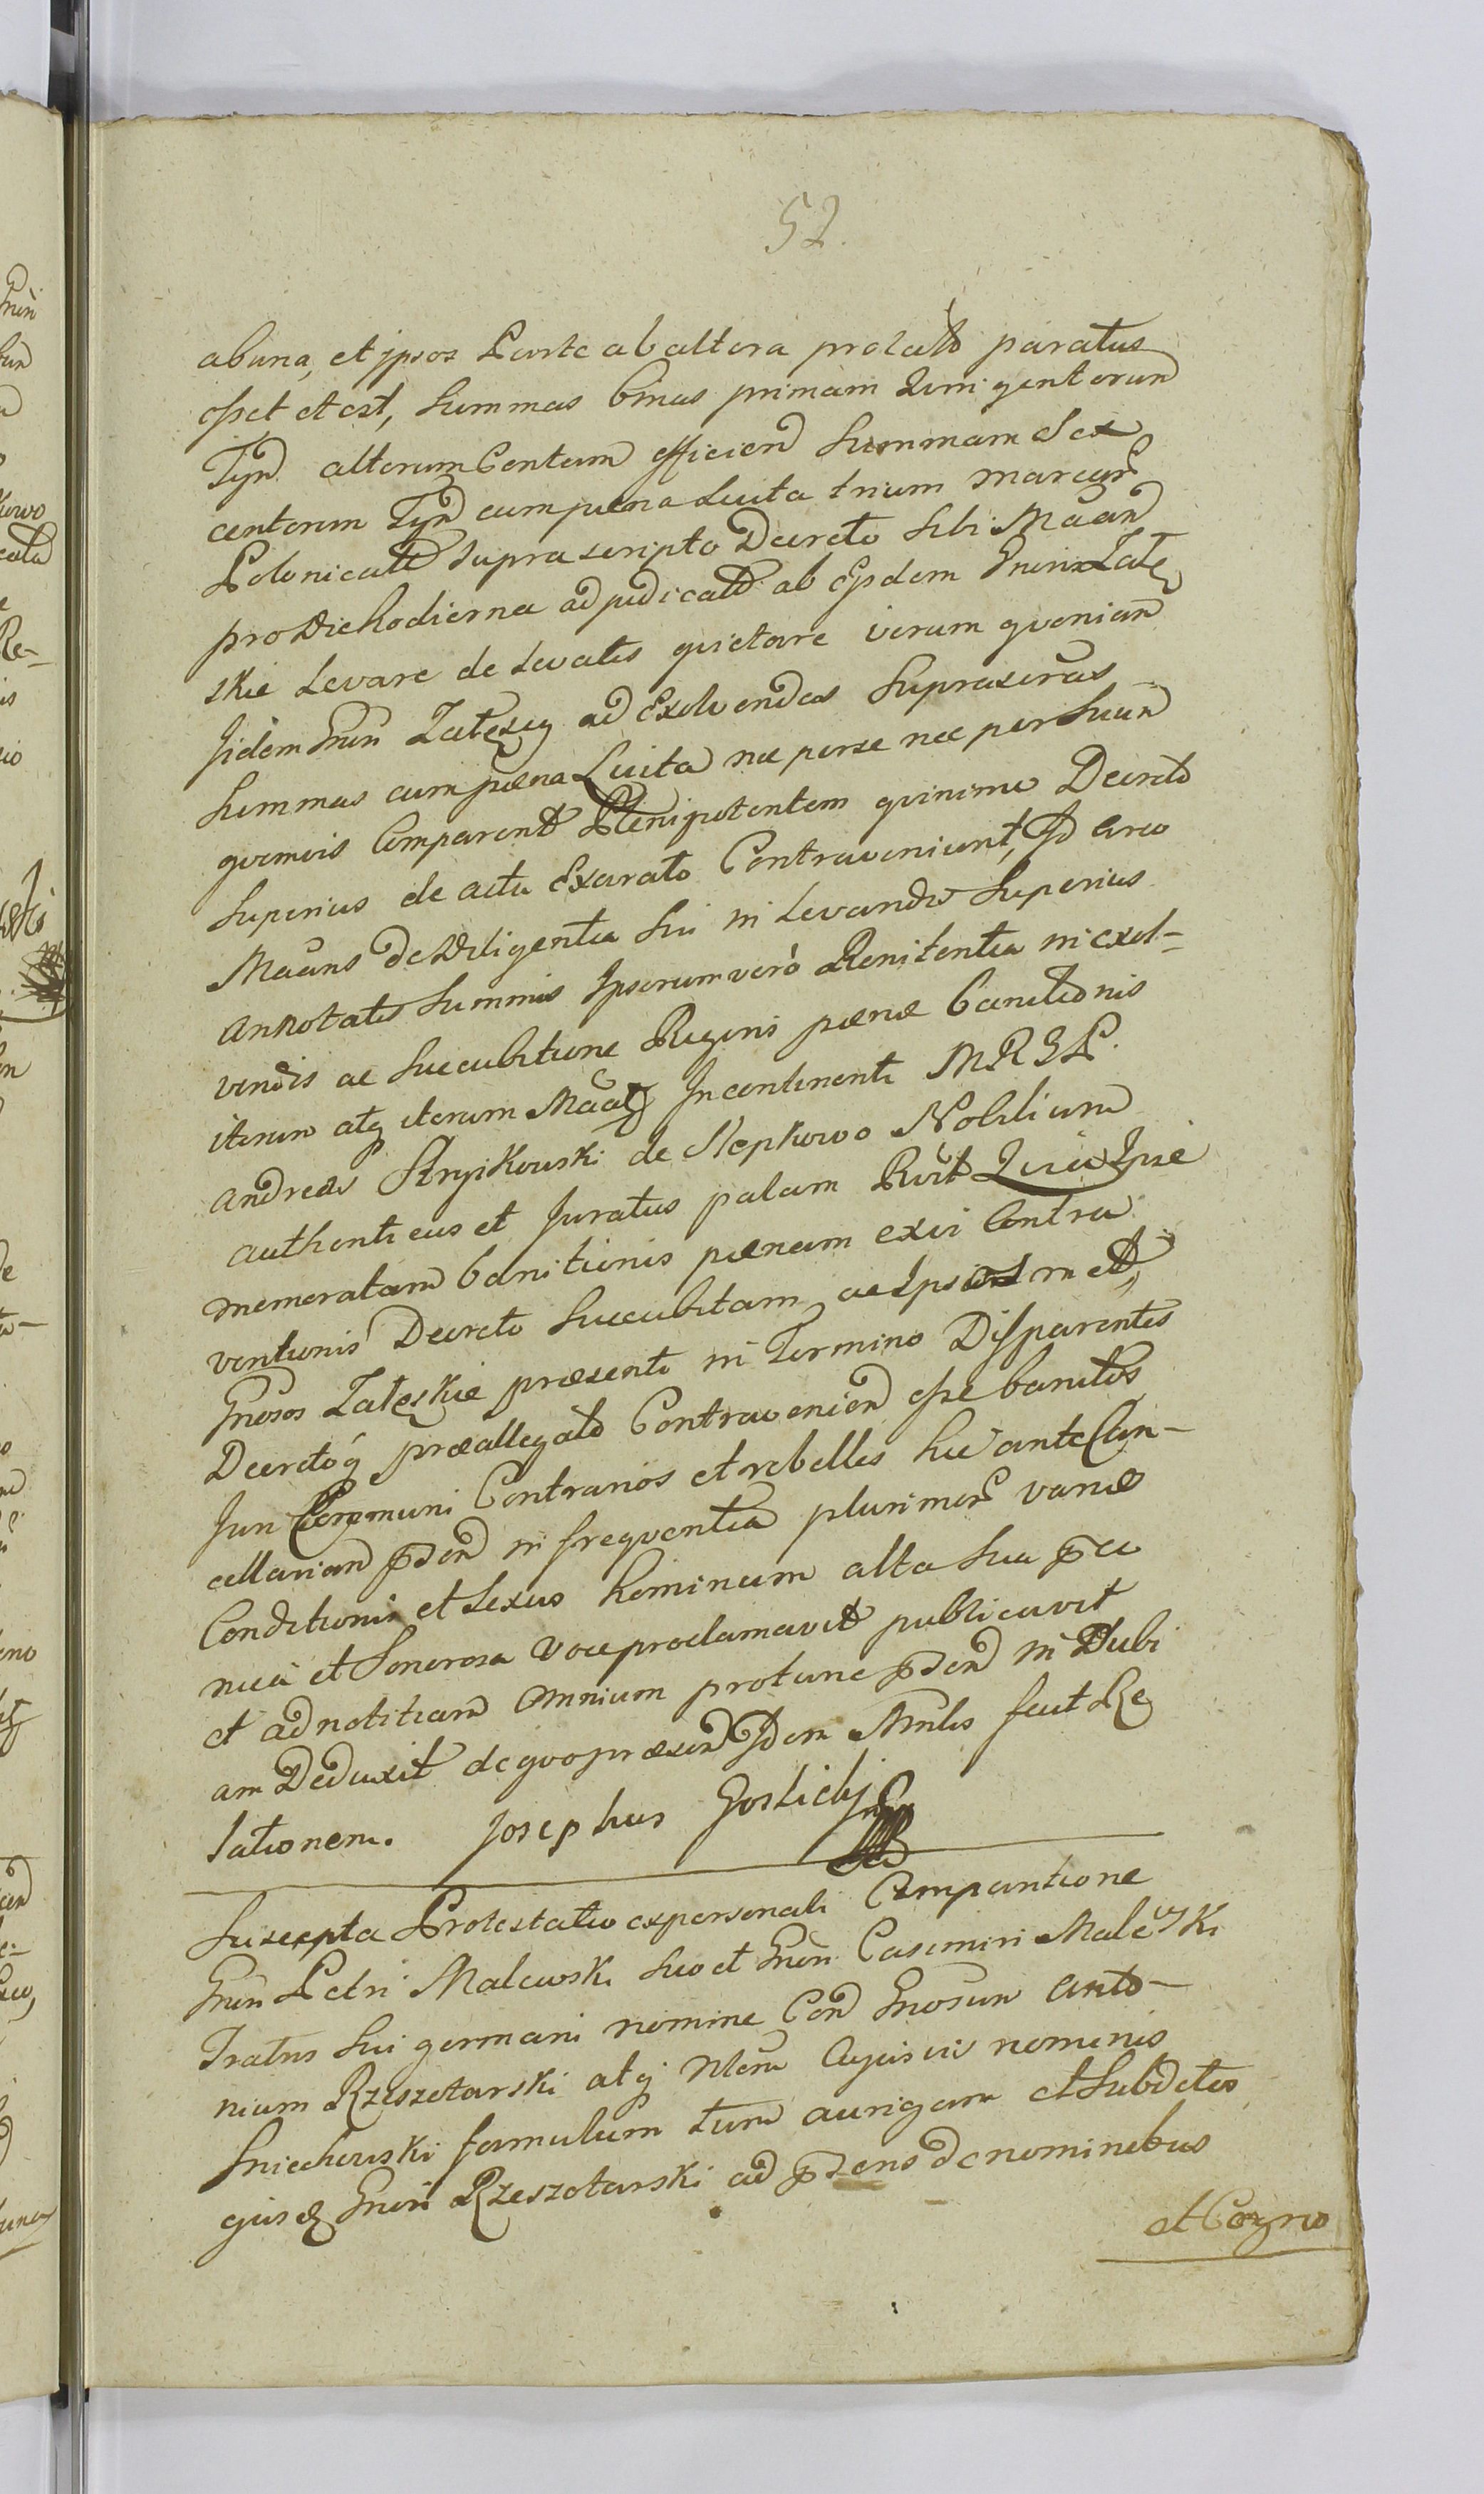 52.
abuna, et ipsos Parte ab altera prolato paratus
esset et est, Summas binas primam Quingentorum
Tynf alteram Centum efficien Summam Sex
centorum Tynf cum pæna Luita trium marcar
Polonicali suprascripto Decreto sibi Maan
pro die hodierna adjudicato ab Eisdem Gnrin Załę
skie Levare de Levatis quietare verum quoniam
Jidem Gnrn Załęscy ad Exolvendas Suprascras
Summas cum pæna Luita nec per se nec per Suum
quemvis Comparent Plenipotentem quinimo Decreto
Superius de actu Exarato Contraveniunt, Id circo
Maans de Diligentia sui in Levandis Superius
annotatis Summis Ipsorum verò Renitentia in exol-
vendis ac Succubitione Regeni pænæ banitionis
iterum atq iterum Maatq Incontinenti MRSP.
Andreas Stryikowski de Slepkowo Nobilium
authenticus et Juratus palam Rvit Quia Ipse
memoratam banitionis pænam ex vi Contra
ventionis Decreto Succubitam ac Ipsos met
Gnosos Załęskie præsenti in Termino Disparentes
Decretoq præallegato Contravenien esse banitos
Juri Communi Contrarios et rebelles hic ante Can-
cellariam pden in frequentia plurimor variæ
Conditionis et Sexus hominum alta sua pcu
nua et Sonorosa voce proclamavit publicavit
et ad notitiam omnium protunc pden in Dubi
am Deduxit de quo præsen Idem Mnlis fecit Re
lationem. Josephus Goslicki
Suscepta Protestatio ex personali Comparitione
Gnrn Petri Malewski suo et Gnrn Casimiri Malewski
Fratris sui germani nomine Con Gnosum Anto-
nium Rzeszotarski atq Nlem Cujusvis nominis
Sniechowski famulum tum aurigam et Subditos
ejusd Gnrn Rzeszotarski ad pdens de nominibus
et Cogno